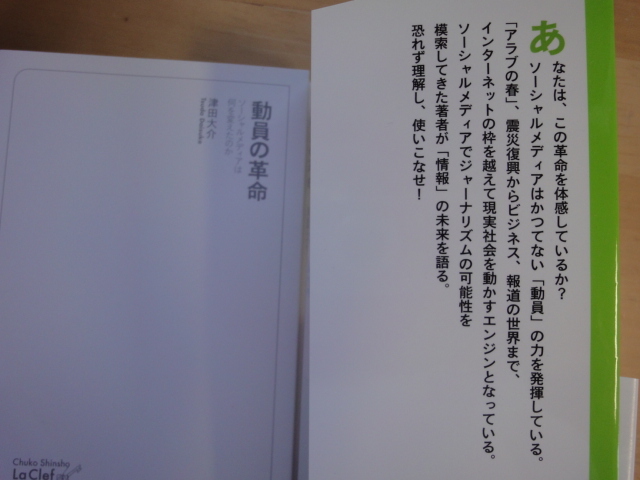 あなたは、この革命を体感しているか？
ソーシャルメディアはかつてない「動員」の力を発揮している。
「アラブの春」、震災復興からビジネス、報道の世界まで、
インターネットの枠を越えて現実社会を動かすエンジンとなっている。
ソーシャルメディアでジャーナリズムの可能性を
模索してきた著者が「情報」の未来を語る。
恐れず理解し、使いこなせ！
動員の革命
ソーシャルメディアは
何を変えたのか
津田大介
Tsuda Daisuke
Chuko Shinsho
La Clef